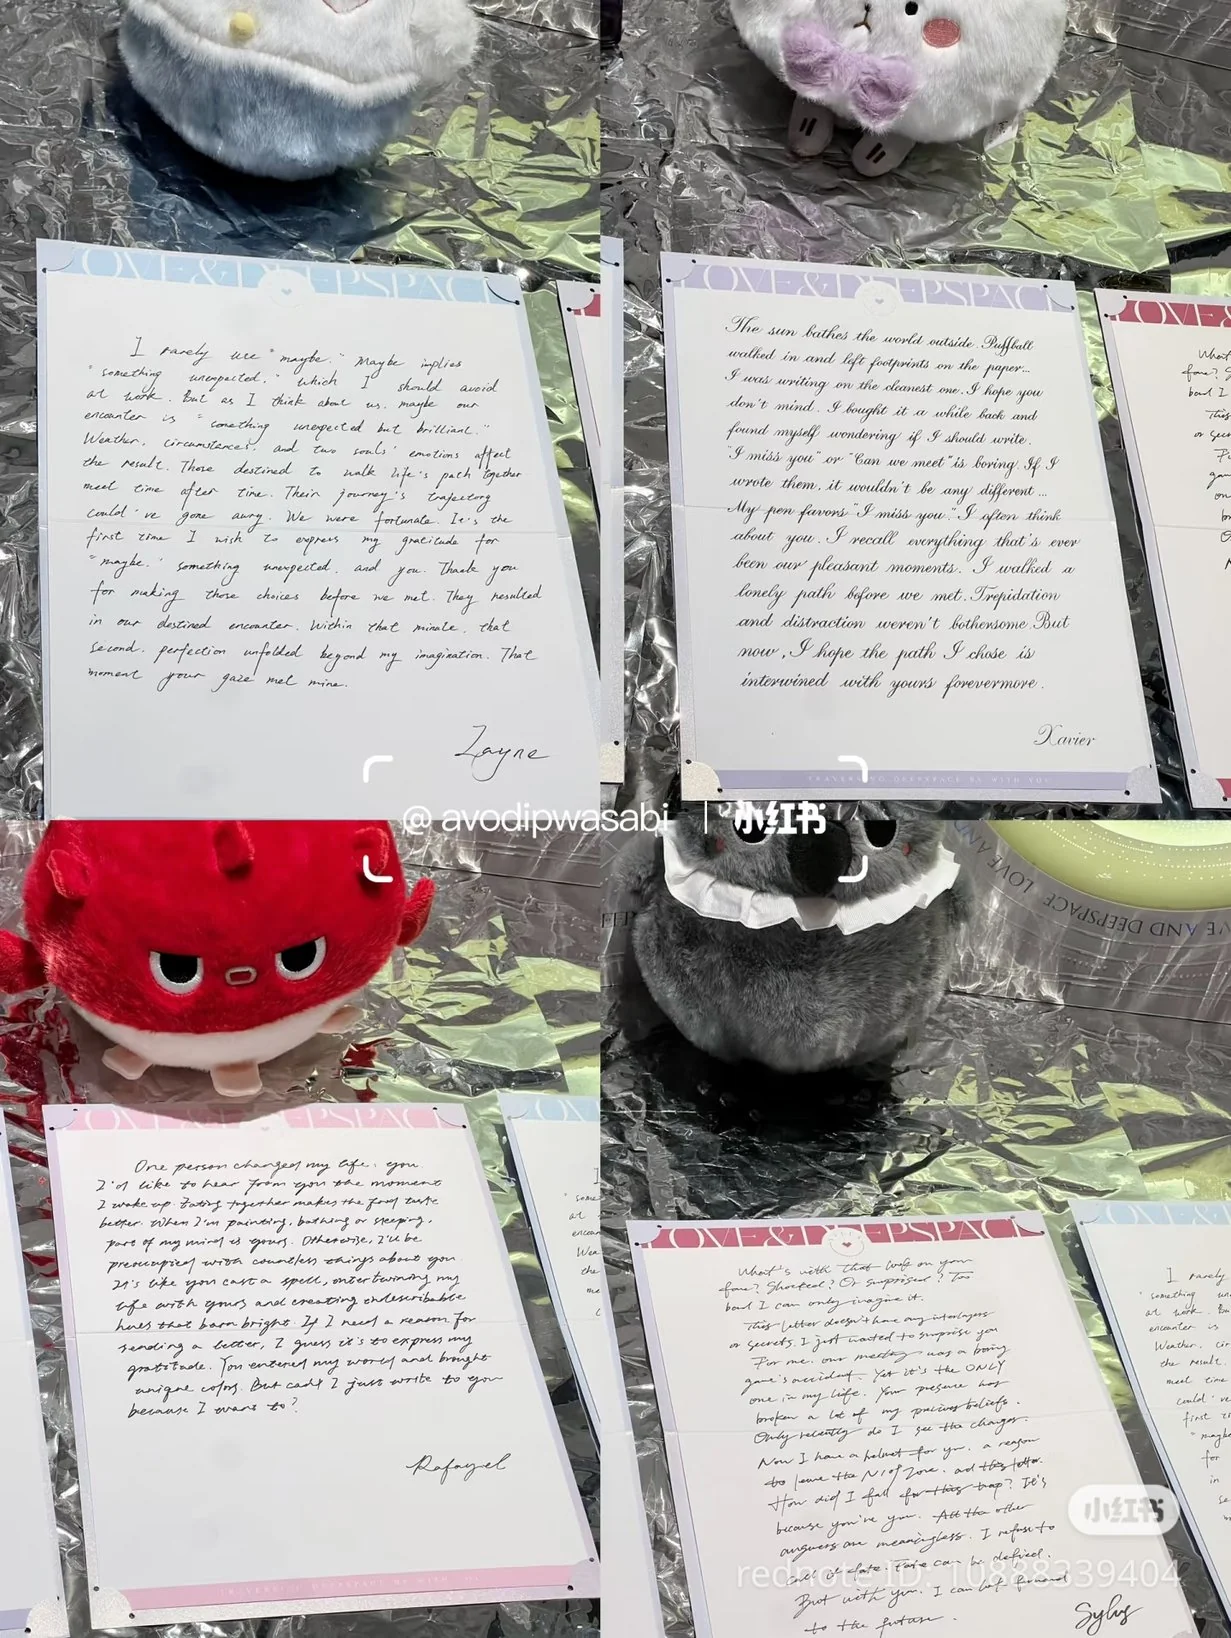 LOVE&DEEPSPACE
I rarely use "maybe." Maybe implies
"something unexpected," which I should avoid
at work. But as I think about us, maybe our
encounter is "something unexpected but brilliant."
Weather, circumstances, and two souls' emotions affect
the result. Those destined to walk life's path together
meet time after time. Their journey's trajectory
could've gone awry. We were fortunate. It's the
first time I wish to express my gratitude for
"maybe," something unexpected, and you. Thank you
for making those choices before we met. They resulted
in our destined encounter. Within that minute, that
second, perfection unfolded beyond my imagination. That
moment your gaze met mine.
Zayne
LOVE&DEEPSPACE
The sun bathes the world outside. Puffball
walked in and left footprints on the paper...
I was writing on the cleanest one. I hope you
don't mind. I bought it a while back and
found myself wondering if I should write.
"I miss you" or "Can we meet" is boring. If I
wrote them, it wouldn't be any different...
My pen favors "I miss you." I often think
about you. I recall everything that's ever
been our pleasant moments. I walked a
lonely path before we met. Trepidation
and distraction weren't bothersome But
now, I hope the path I chose is
interwined with yours forevermore.
Xavier
TRAVERSING DEEPSPACE BE WITH YOU
@ avodipwasabi | 小红书
LOVE&DEEPSPACE
One person changed my life: you.
I'd like to hear from you the moment
I wake up. Eating together makes the food taste
better. When I'm painting, bathing or sleeping,
part of my mind is yours. Otherwise, I'll be
preoccupied with countless things about you.
It's like you cast a spell, intertwining my
life with yours and creating indescribable
hues that burn bright. If I need a reason for
sending a letter, I guess it's to express my
gratitude. You entered my world and brought
unique colors. But can't I just write to you
because I want to?
Rafayel
LOVE AND DEEPSPACE
LOVE&DEEPSPACE
What's with that look on your
face? Shocked? Or surprised? Too
bad I can only imagine it.
This letter doesn't have any interlayers
or secrets. I just wanted to surprise you
For me, our meeting was a boring
game's accident. Yet it's the ONLY
one in my life. Your presence has
broken a lot of my previous beliefs.
Only recently do I see the changes.
Now I have a helmet for you, a reason
to leave the N109 Zone, and this letter.
How did I fall for this trap? It's
because you're you. All the other
answers are meaningless. I refuse to
call it fate. Fate can be defied.
But with you, I can look forward
to the future.
Sylus
小红书
rednote ID: 10888339404